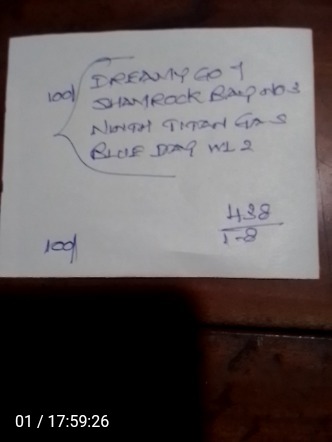 DREAMY GO 1
100/ SHAMROCK BAY NO 3
NINTH TITAN GA S
BLUE DAY W1 2
438
1-8
100/
01 / 17:59:26